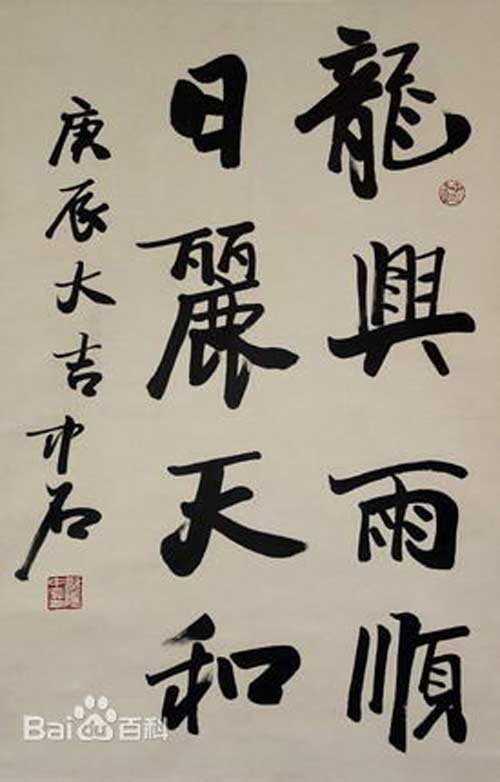 龍興雨順
日麗天和
庚辰大吉中石
Bai百科